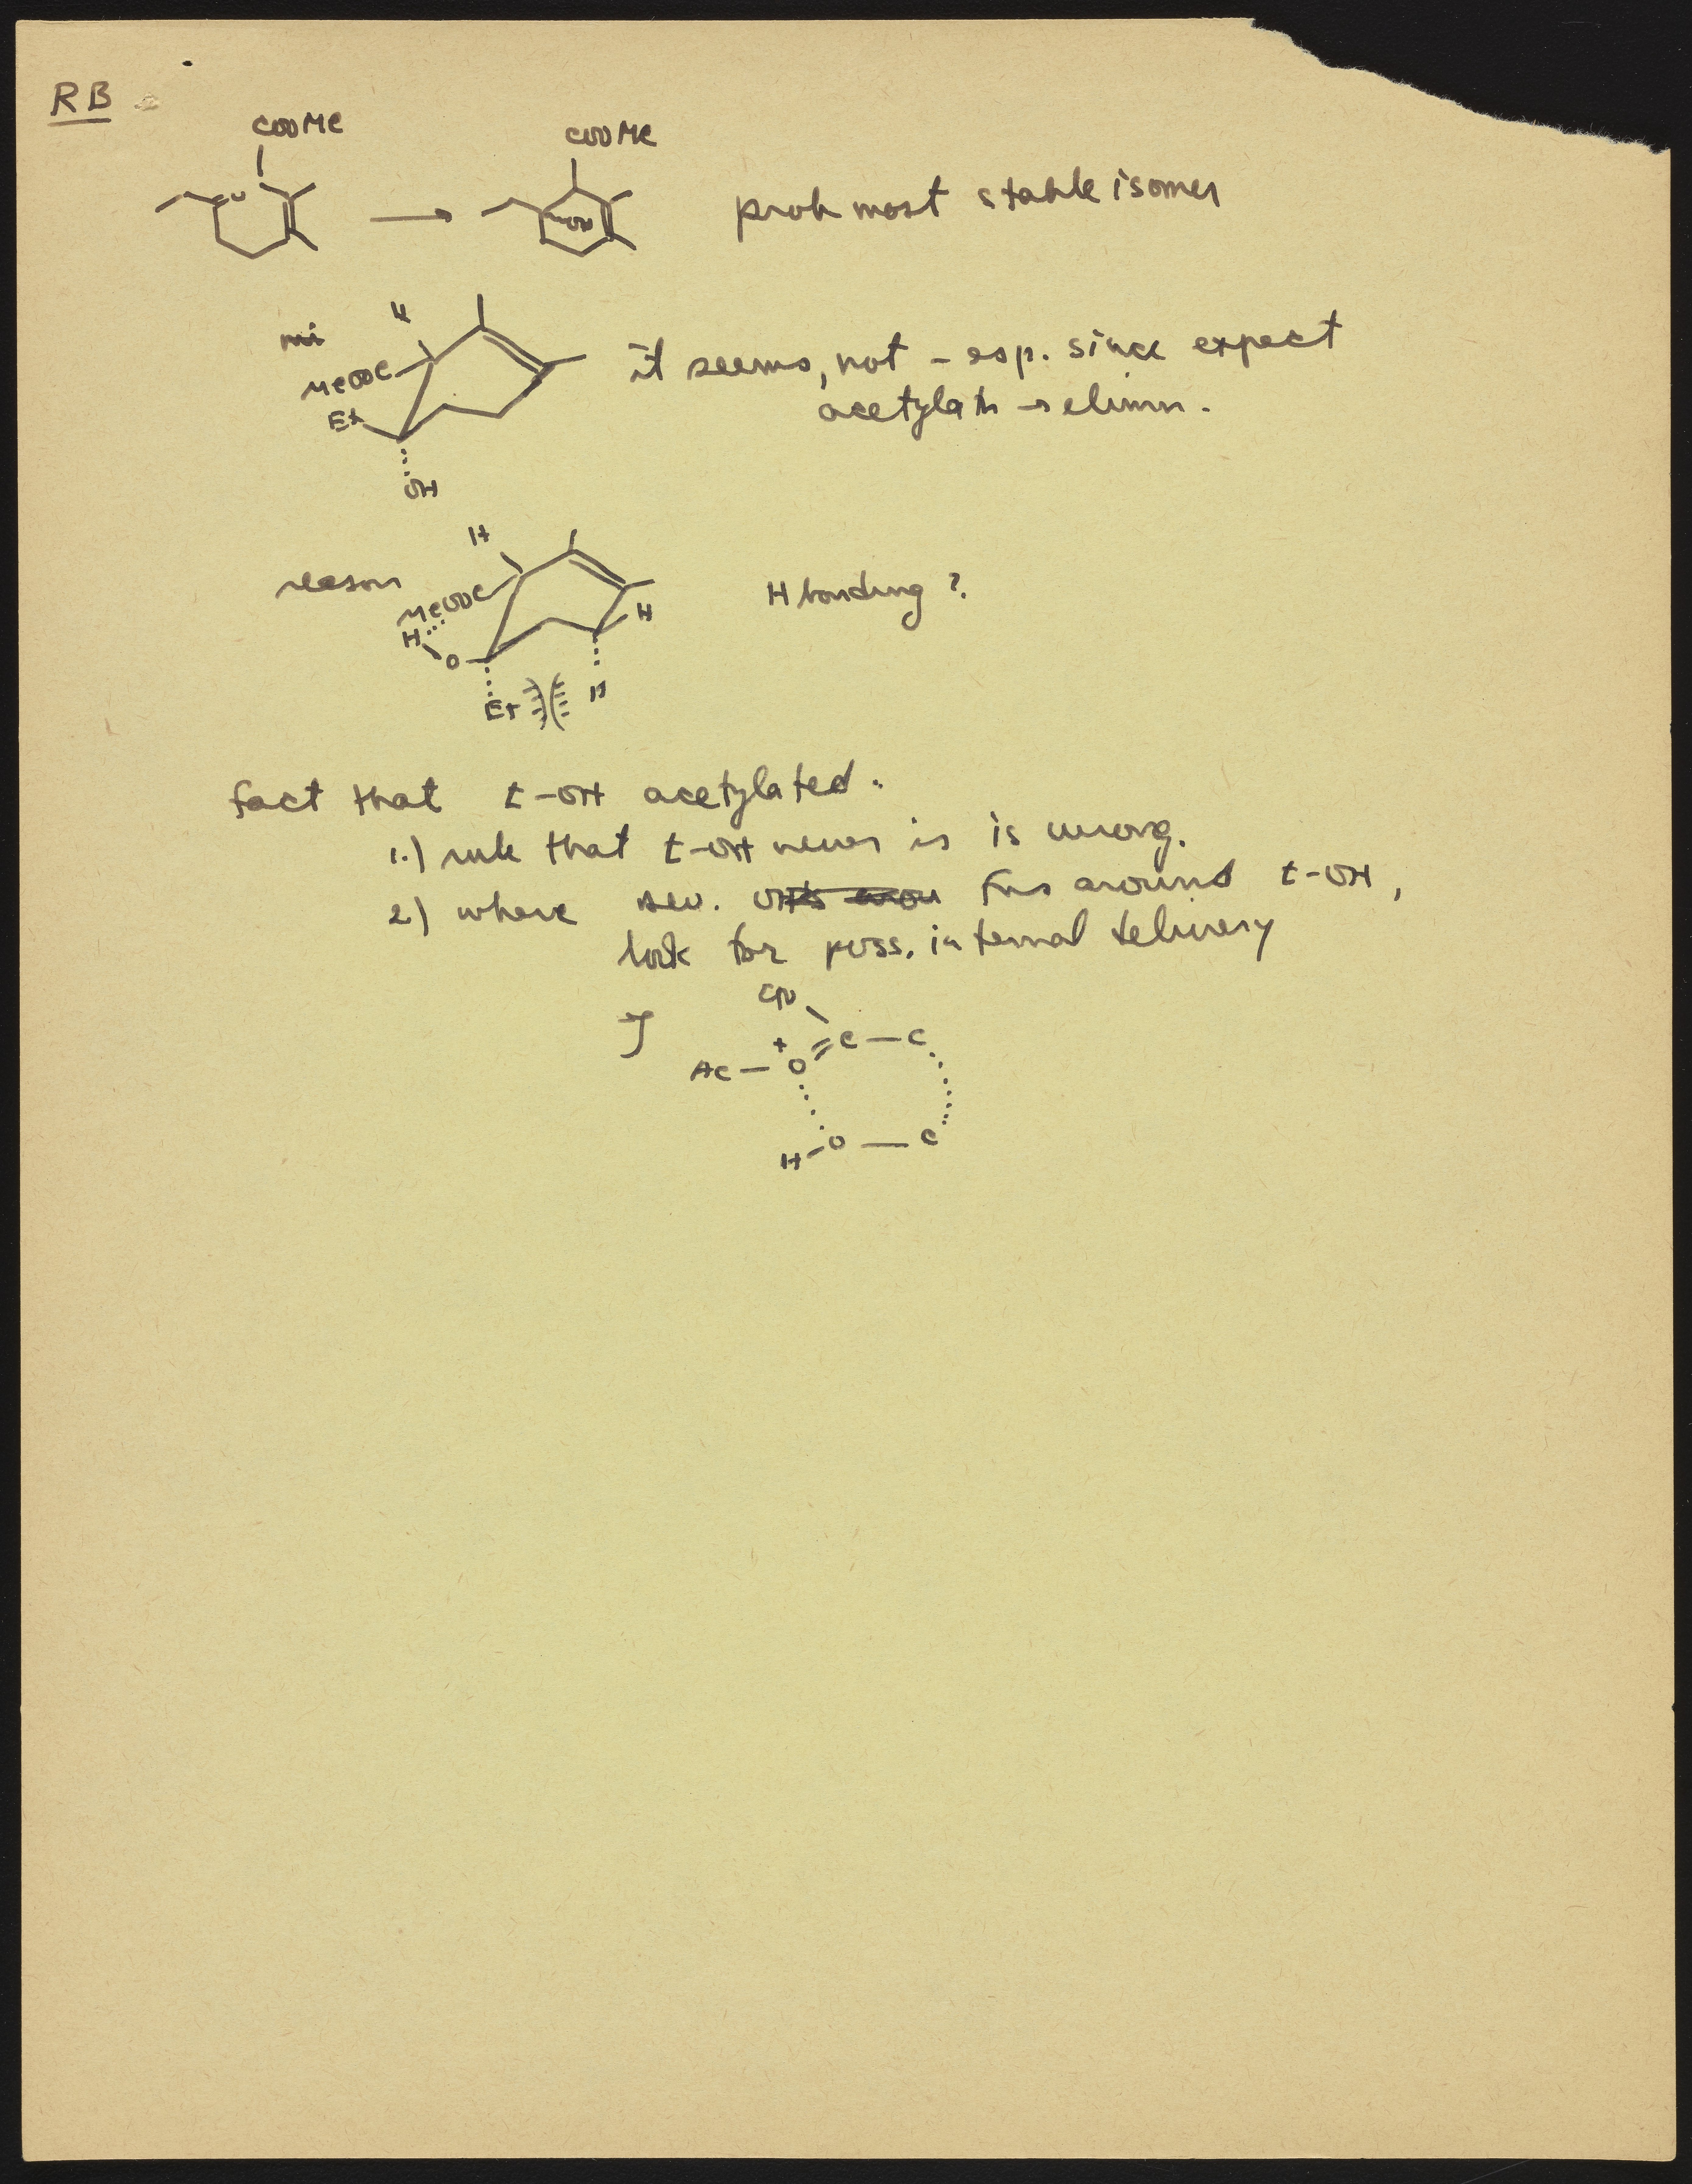 RB
COOMe
COOMe
prob most stable isomer
H
MeOOC
Et
OH
it seems, not - esp. since expect
acetylatn → elimn.
reason
H
MeOOC
H
O
H
Et
H
H bonding ?
fact that t-OH acetylated.
1.) rule that t-OH never is is wrong.
2) where sev. fns around t-OH,
look for poss. internal delivery
Ac — O + = C — C
H - O — C